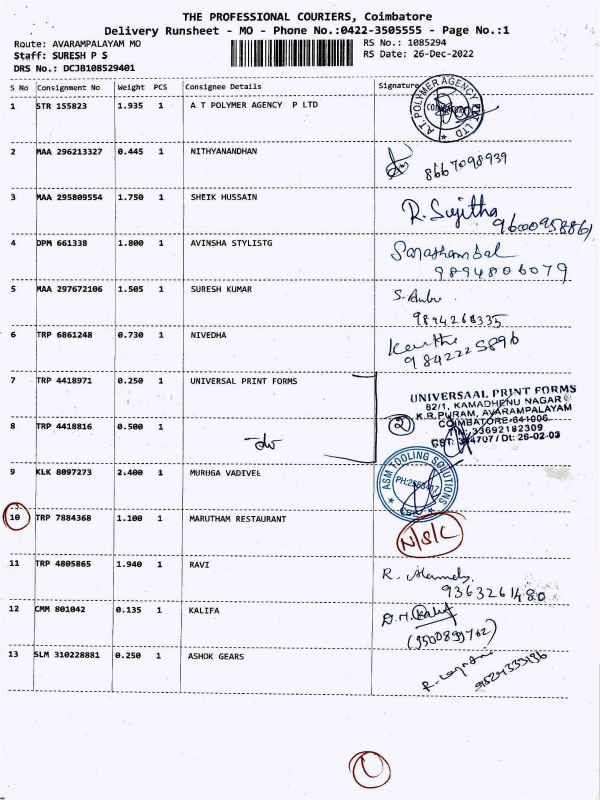 THE PROFESSIONAL COURIERS, Coimbatore
Delivery Runsheet - MO - Phone No.:0422-3505555 - Page No.:1
Route: AVARAMPALAYAM MO RS No.: 1085294
Staff: SURESH P S RS Date: 26-Dec-2022
DRS No.: DCJB108529401
S No Consignment No Weight PCS Consignee Details Signature
1 STR 155823 1.935 1 A T POLYMER AGENCY P LTD
A.T. POLYMER AGENCY PVT LTD
2 MAA 296213327 0.445 1 NITHYANANDHAN
8667098939
3 MAA 295809554 1.750 1 SHEIK HUSSAIN R. Sujitha
4 DPM 661338 1.800 1 AVINSHA STYLISTG
9894806079
5 MAA 297672106 1.505 1 SURESH KUMAR
9894268335
6 TRP 6861248 0.730 1 NIVEDHA
9842225896
7 TRP 4418971 0.250 1 UNIVERSAL PRINT FORMS
UNIVERSAAL PRINT FORMS
82/1, KAMADHENU NAGAR
K.R.PURAM, AVARAMPALAYAM
8 TRP 4418816 0.500 1 2 COIMBATORE-641006
33692182309
/ Dt: 26-02-03
9 KLK 8097273 2.400 1 MURUGA VADIVEL
ASM TOOLING SOLUTIONS
10 TRP 7884368 1.100 1 MARUTHAM RESTAURANT
N/S/L
11 TRP 4805865 1.940 1 RAVI
9363261480
12 CMM 801042 0.135 1 KALIFA
D.M. Kalif
13 SLM 310228881 0.250 1 ASHOK GEARS